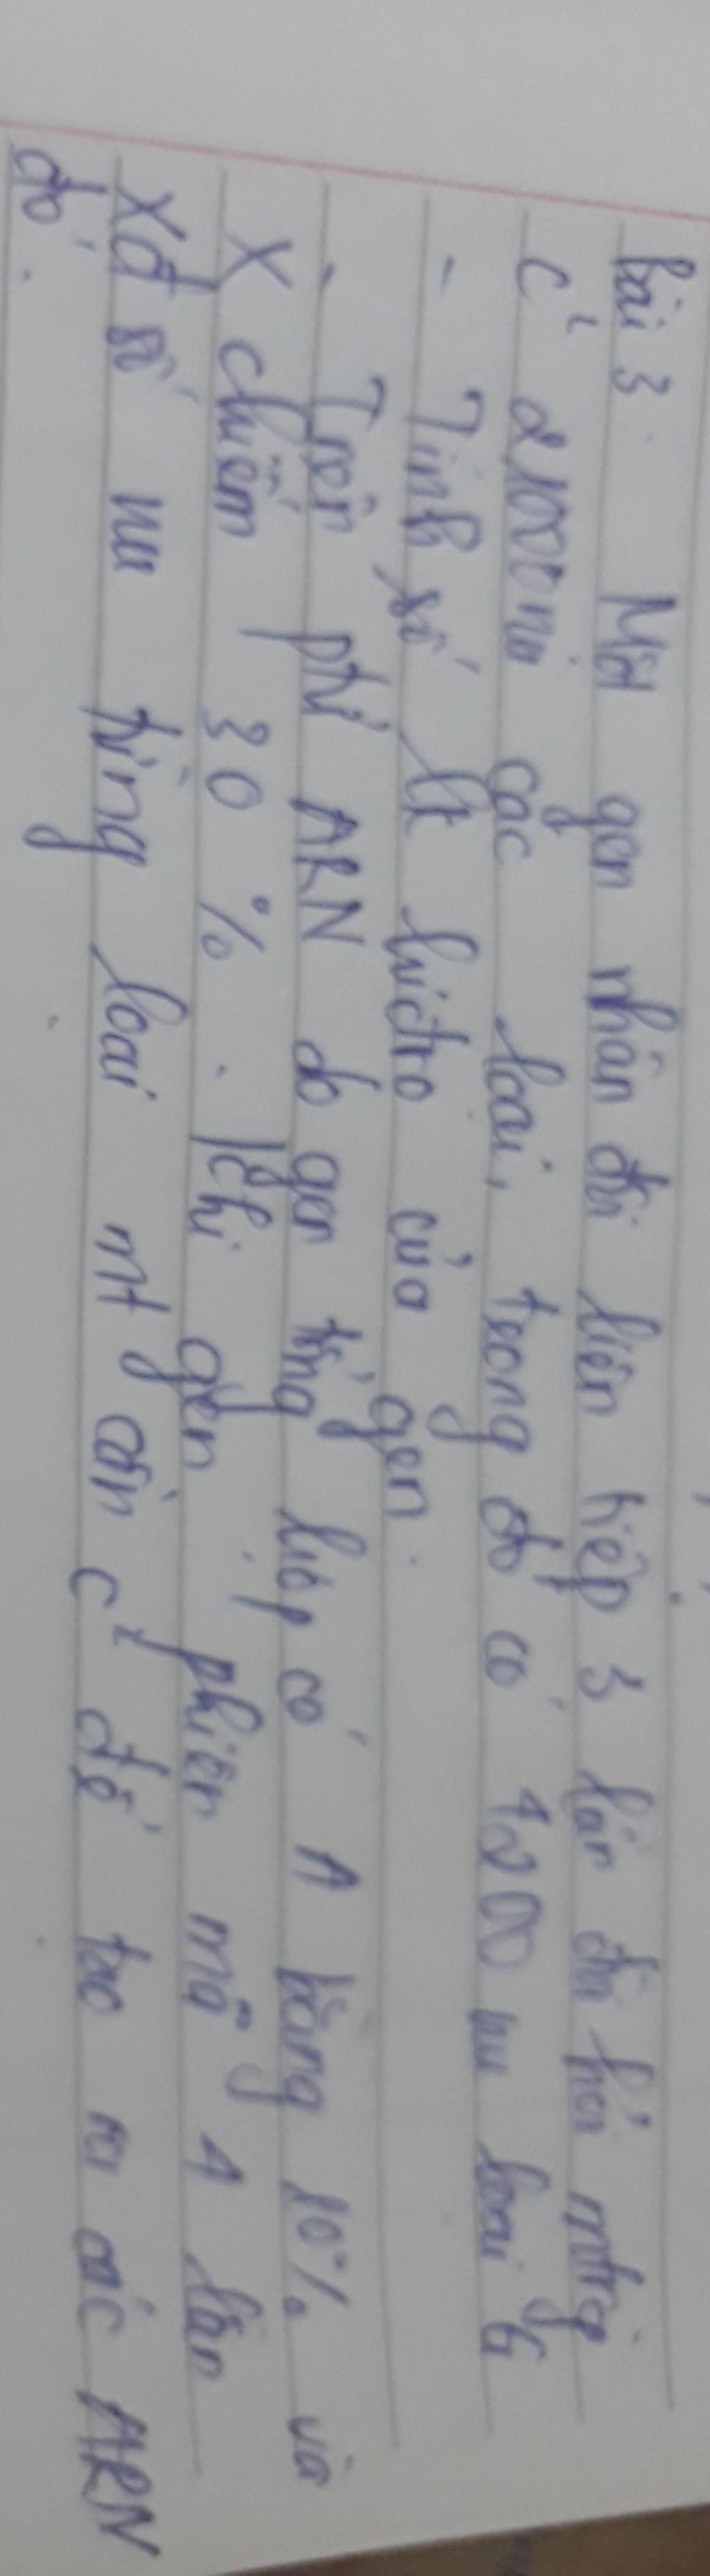 bài 3. Một gen nhân đôi liên tiếp 3 lần đòi hỏi mtrg
c² 21000nu các loại, trong đó có 4200 nu loại G
- Tính số lk hiđro của gen.
- Trên ptử ARN do gen tổng hợp có A bằng 10% và
X chiếm 30%. Khi gen phiên mã 4 lần
Xđ số nu từng loại mt cần c² để tạo ra các ARN
đó.